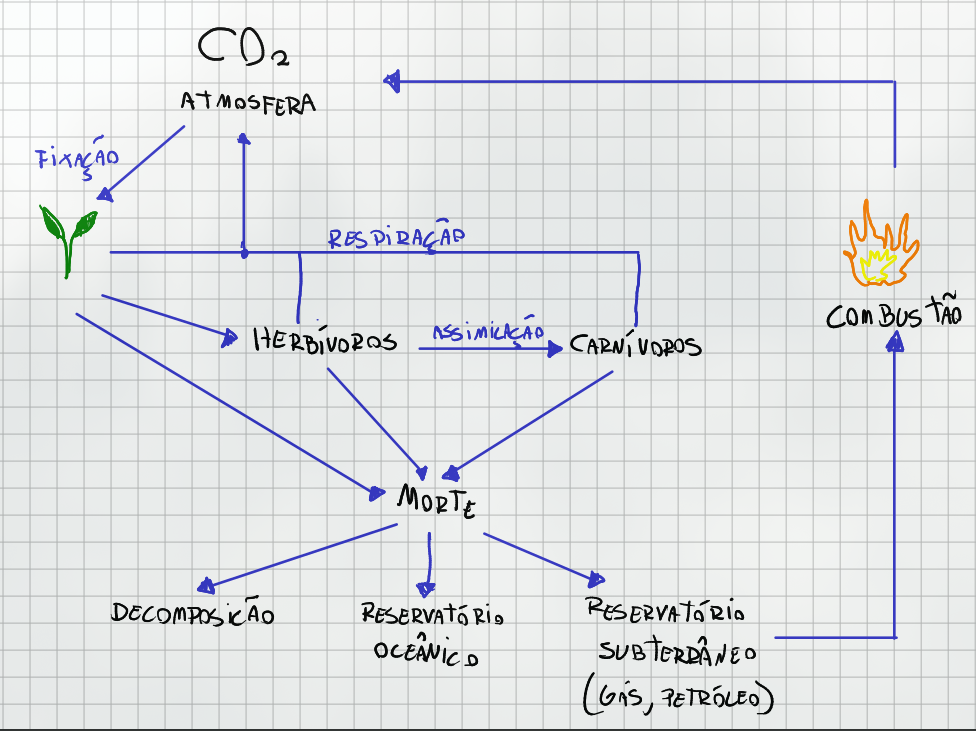 CO₂
ATMOSFERA
FIXAÇÃO
RESPIRAÇÃO
HERBÍVOROS
ASSIMILAÇÃO
CARNÍVOROS
COMBUSTÃO
MORTE
DECOMPOSIÇÃO
RESERVATÓRIO
OCEÂNICO
RESERVATÓRIO
SUBTERRÂNEO
(GÁS, PETRÓLEO)